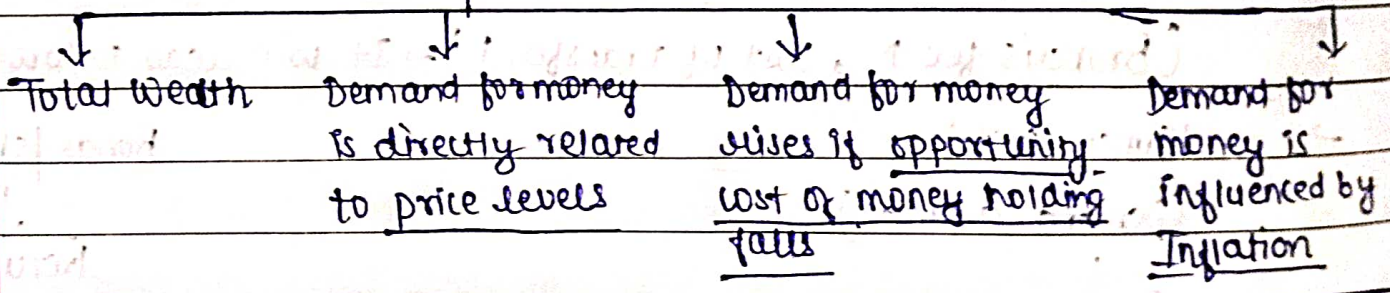 Total Wealth
Demand for money
is directly related
to price levels
Demand for money
rises if opportunity
cost of money holding
falls
Demand for
money is
influenced by
Inflation